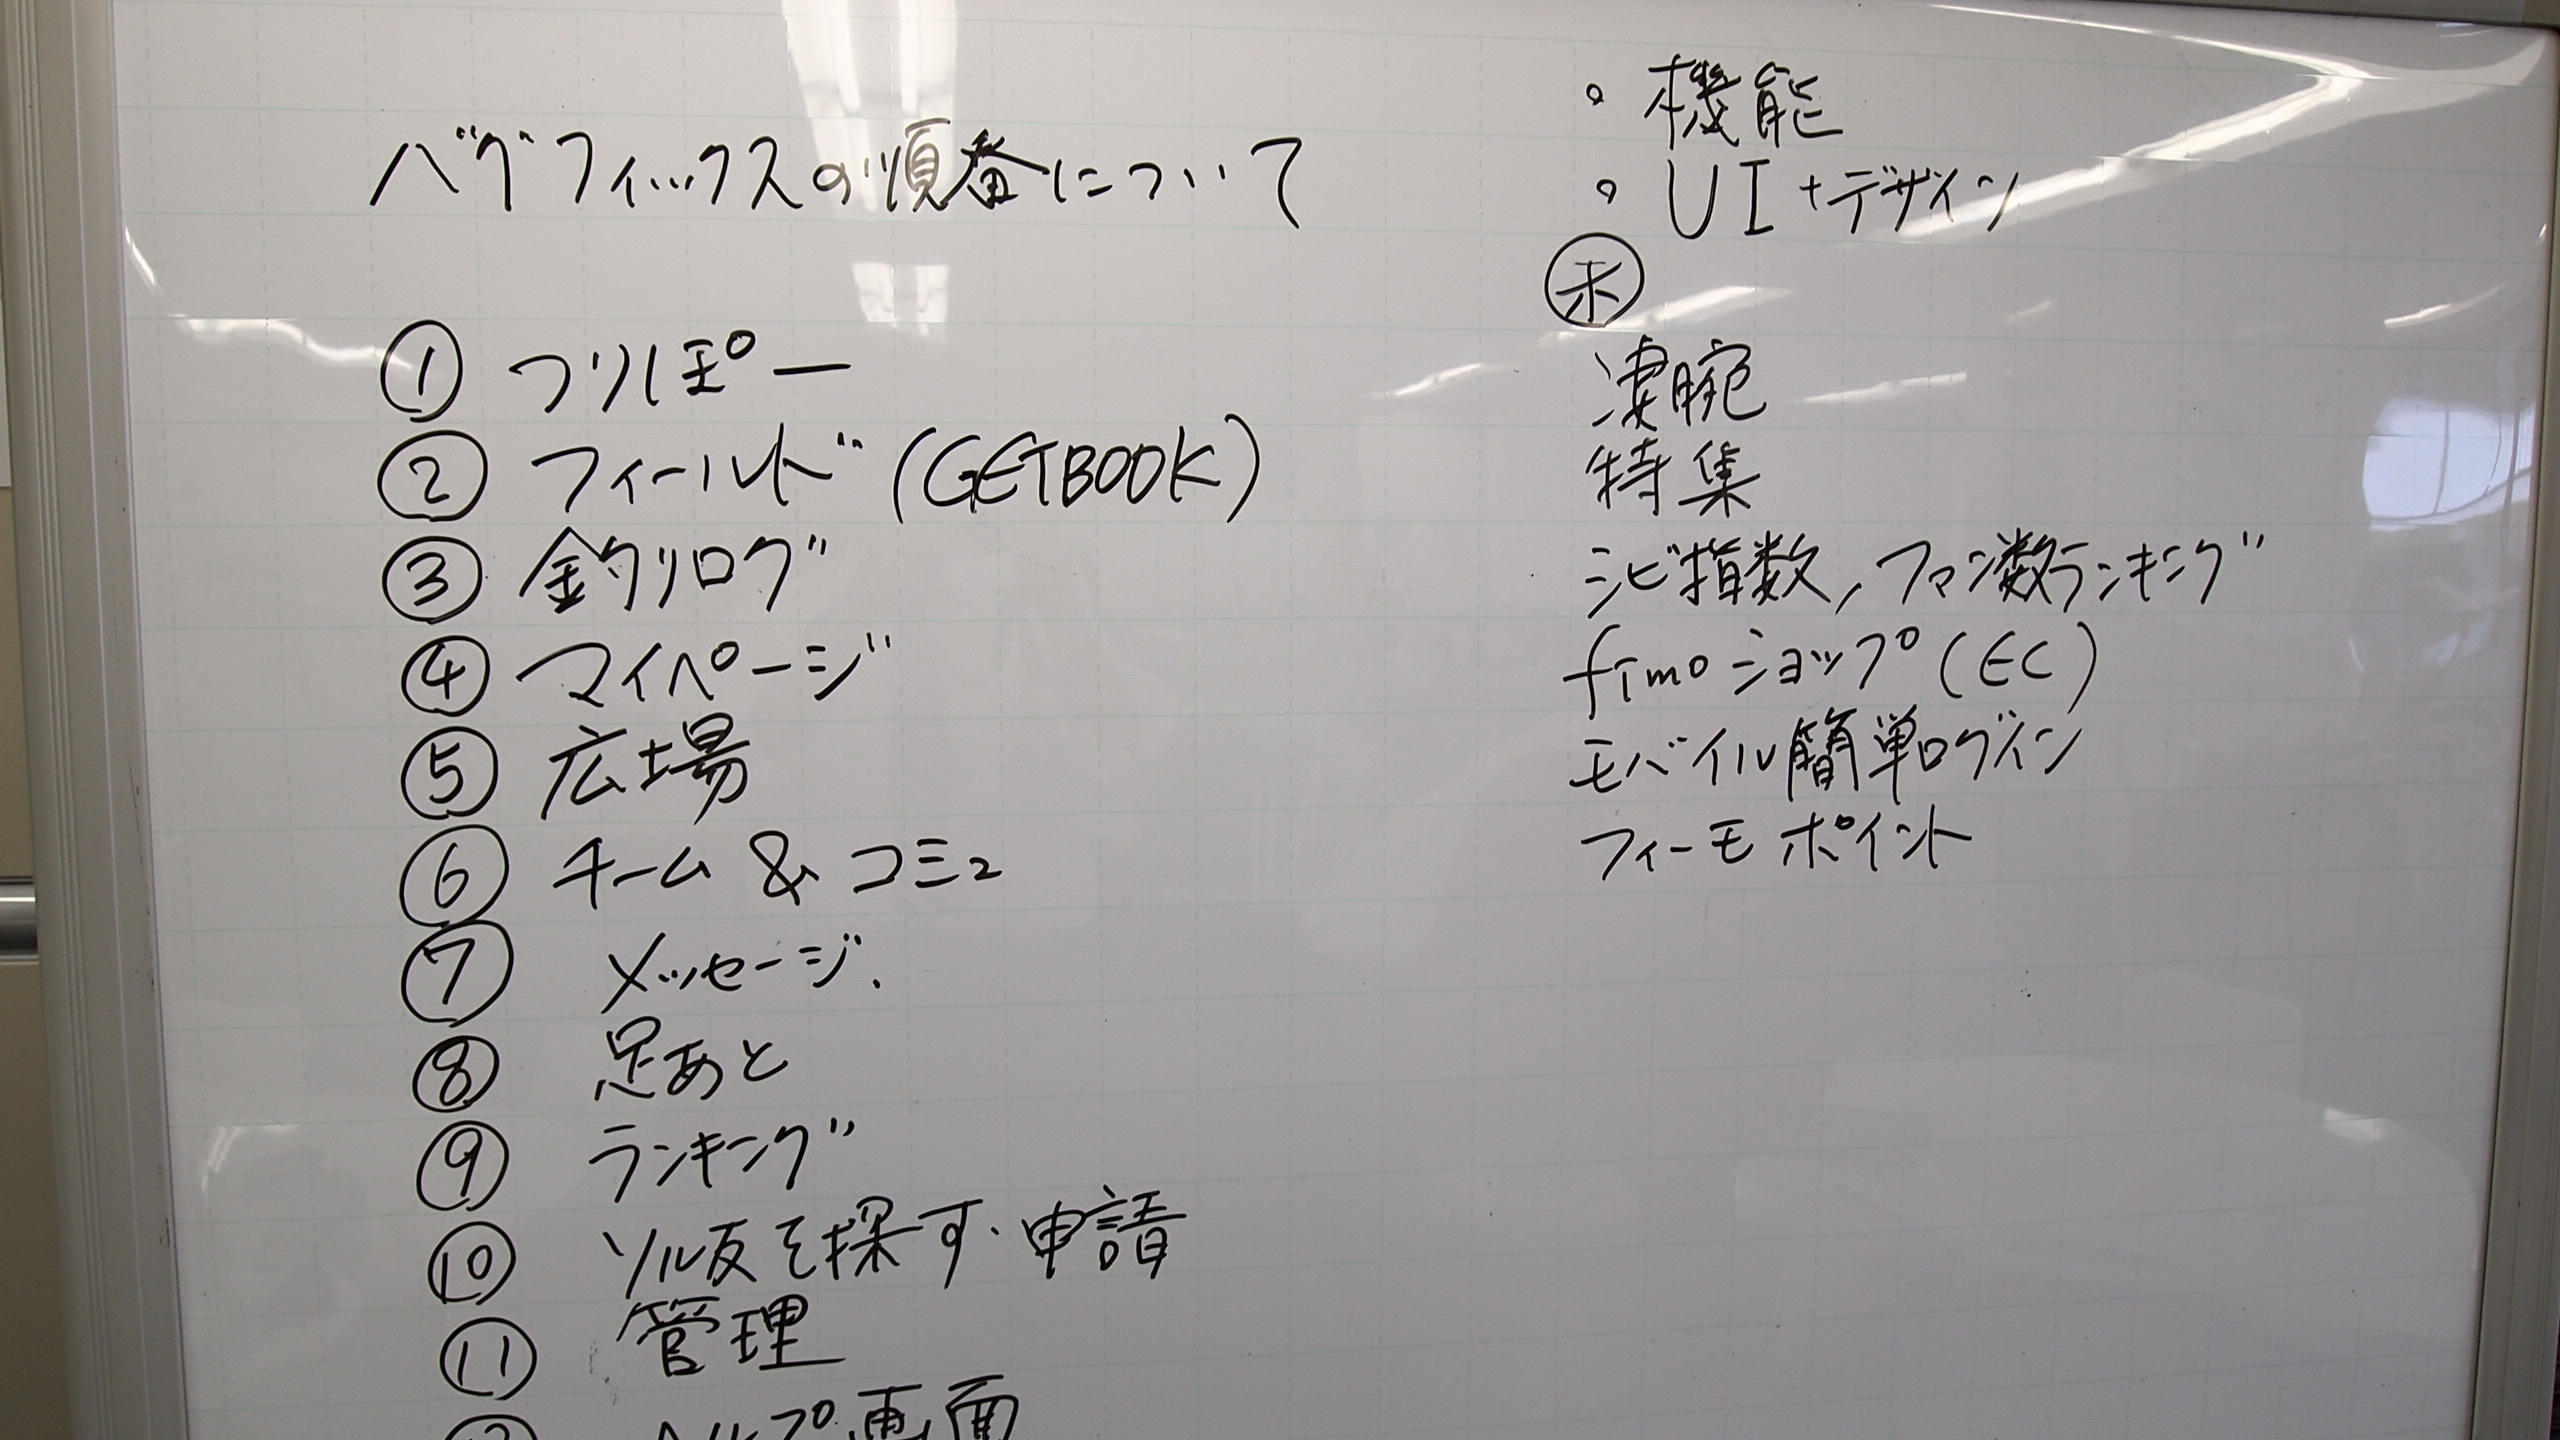 バグフィックスの順番について
① つりぽー
② フィールド (GETBOOK)
③ 釣りログ
④ マイページ
⑤ 広場
⑥ チーム & コミュ
⑦ メッセージ.
⑧ 足あと
⑨ ランキング
⑩ ソル友を探す・申請
⑪ 管理
⑫ ヘルプ画面
・機能
・UI+デザイン
凄腕
特集
シビ指数, ファン数ランキング
fimoショップ (EC)
モバイル簡単ログイン
フィーモ ポイント